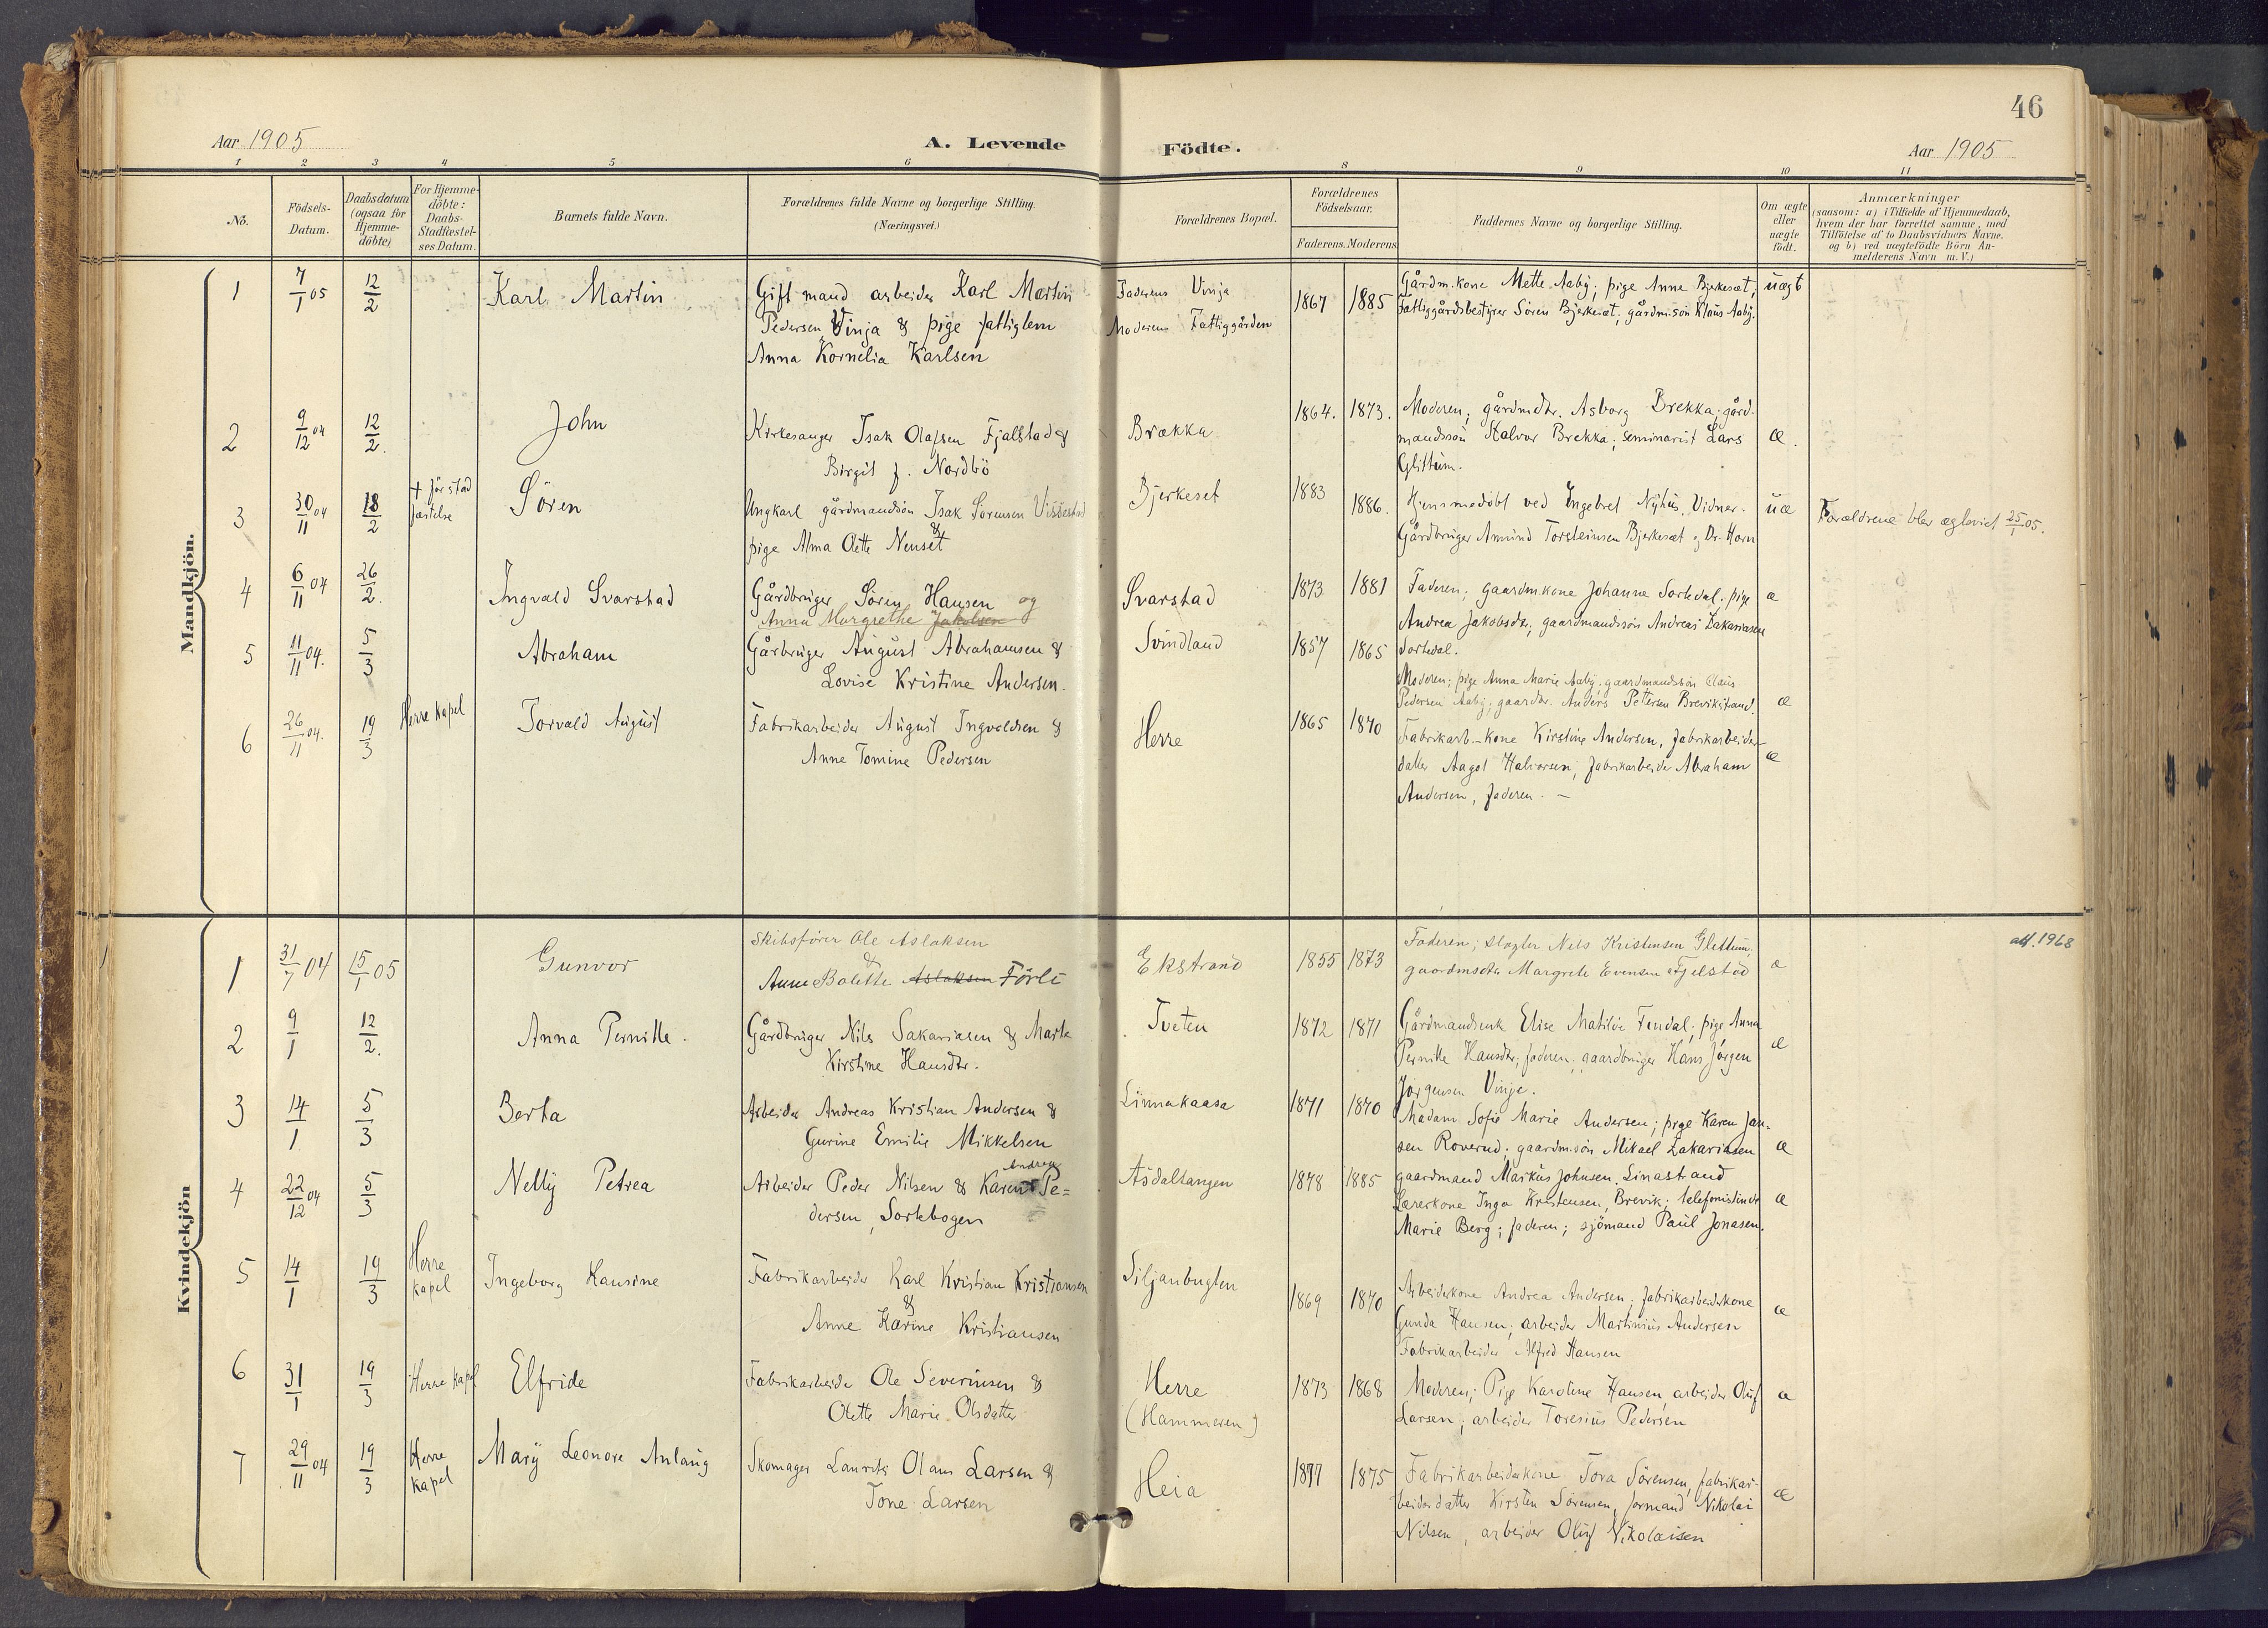 46
Aar 1905
A. Levende Födte.
Aar 1905
1 2 3 4 5 6 8 9 10 11
No.
Födsels-
Datum.
Daabsdatum
(ogsaa for
Hjemme-
döbte)
For Hjemme-
döbte:
Daabs-
Stadfæstel-
ses Datum.
Barnets fulde Navn.
Forældrenes fulde Navne og borgerlige Stilling.
(Næringsvei.)
Forældrenes Bopæl.
Forældrenes
Födselsaar.
Faderens. Moderens
Faddernes Navne og borgerlige Stilling.
Om ægte
eller
uægte
födt.
Anmærkninger
(saasom: a) i Tilfælde af Hjemmedaab,
hvem der har forrettet samme, med
Tilföielse af to Daabsvidners Navne.
og b) ved uægtefödte Börn An-
melderens Navn m. V.)
Mandkjön.
1
7/1 05
12/2
Karl Martin
Gift mand arbeider Karl Martin
Pedersen Vinja & pige fattiglem
Anna Kornelia Karlsen
Faderens Vinje
Moderens Fattiggården
1867
1885
Gårdm.kone Mette Aaby; pige Anne Bjerkeset,
Fattiggårdsbestyrer Sören Bjerkeset, gårdm.sön Klaus Aaby.
uægt
2
9/12 04
12/2.
John
Kirkesanger Isak Olafsen Fjalstad &
Birgit f. Nordbö
Brækka
1864.
1873.
Moderen; gårdmdtr. Asborg Brekka; gård-
mandssön Halvor Brekka; seminarist Lars
Glittum.
æ.
3
30/11 04
18/2
+ för stad
fæstelse
Sören
Ungkarl gårdmandsön Isak Sörensen
&
pige Alma Olette Nenset
Bjerkeset
1883
1886.
Hjemmedöbt ved Ingebret Nyhus. Vidner.
Gårdbruger Amund Torsteinsen Bjerkeset og Dr. Horn
uæ
Forældrene blev ægteviet 25/1 05.
4
6/11 04
26/2.
Ingvald Svarstad
Gårdbruger Sören Hansen og
Anna Margrethe Jakobsen
Svarstad
1873
1881
Faderen; gaardm.kone Johanne Sortedal; pige
Andrea Jakobsdr; gaardmandssön Andreas Zakariasen
Sortedal.
æ
5
11/11 04.
5/3
Abraham
Gårbruger August Abrahamsen &
Lovise Kristine Andersen.
Svindland
1857
1865
Moderen; pige Anna Marie Aaby. gaardmandssön Claus
Pedersen Aaby; gaardbr. Anders Pettersen Brevikstrand.
æ
6
26/11 04.
19/3
Herre kapel
Torvald August
Fabrikarbeider August Ingvoldsen &
Anne Tomine Pedersen
Herre
1865
1870
Fabrikarb.-kone Kirstine Andersen, fabrikarbeider-
datter Aagot Halvorsen, fabrikarbeider Abraham
Andersen, faderen. —
æ
Kvindekjön
1
31/7 04
15/1 05
Gunvor
Skibsförer Ole Aslaksen
&
Anne Bolette Aslaksen Förli
Ekstrand
1855
1873
Faderen; slagter Nils Kristensen Glittum,
gaardmsdtr Margrete Evensen Fjelstad
æ
att. 1968
2
9/1
12/2.
Anna Pernille.
Gårdbruger Nils Sakariasen & Marte
Kirstine Hansdtr.
Tveten
1872
1871
Gårdmandsenk Elise Matilde Findal; pige Anna
Pernille Hansdtr; faderen; gaardbruger Hans Jörgen
Jörgensen Vinje.
æ
3
14/1
5/3
Berta
Arbeider Andreas Kristian Andersen &
Gurine Emilie Mikkelsen
Linnakaasa
1871
1870
Madam Sofie Marie Andersen; pige Karen Jan-
sen Roverud; gaardm.sön Mikael Zakariasen
gaardmand Markus Johnsen. Linastrand
æ
4
22/12 04
5/3
Nelly Petrea
Arbeider Peder Nilsen & Karen Andrea Pe=
dersen, Sortebogen
Åsdaltangen
1878
1885
Lærerkone Inga Kristensen, Brevik; telefonistinde
Marie Berg; faderen; sjömand Paul Jonasen.
æ
5
14/1
19/3
Herre
kapel
Ingeborg Hansine
Fabrikarbeider Karl Kristian Kristiansen
&
Anne Karine Kristiansen
Siljanbugten
1869
1870
Arbeiderkone Andrea Andersen; fabrikarbeiderkone
Gunda Hansen; arbeider Martinius Andersen
Fabrikarbeider Alfred Hansen
æ
6
31/1
19/3
Herre kapel
Elfride
Fabrikarbeide Ole Severinsen &
Olette Marie Olsdatter
Herre
(Hammeren)
1873
1868
Moderen; Pige Karoline Hansen, arbeider Oluf
Larsen; arbeider Toresius Pedersen
æ
7
29/11 04
19/3
Herre
kapel
Mary Leonore Anlaug
Skomager Laurits Olaus Larsen &
Tone Larsen
Heia
1877
1875
Fabrikarbeiderkone Tora Sörensen, fabrikar-
beiderdatter Kirsten Sörensen, formand Nikolai
Nilsen, arbeider Oluf Nikolaisen
æ